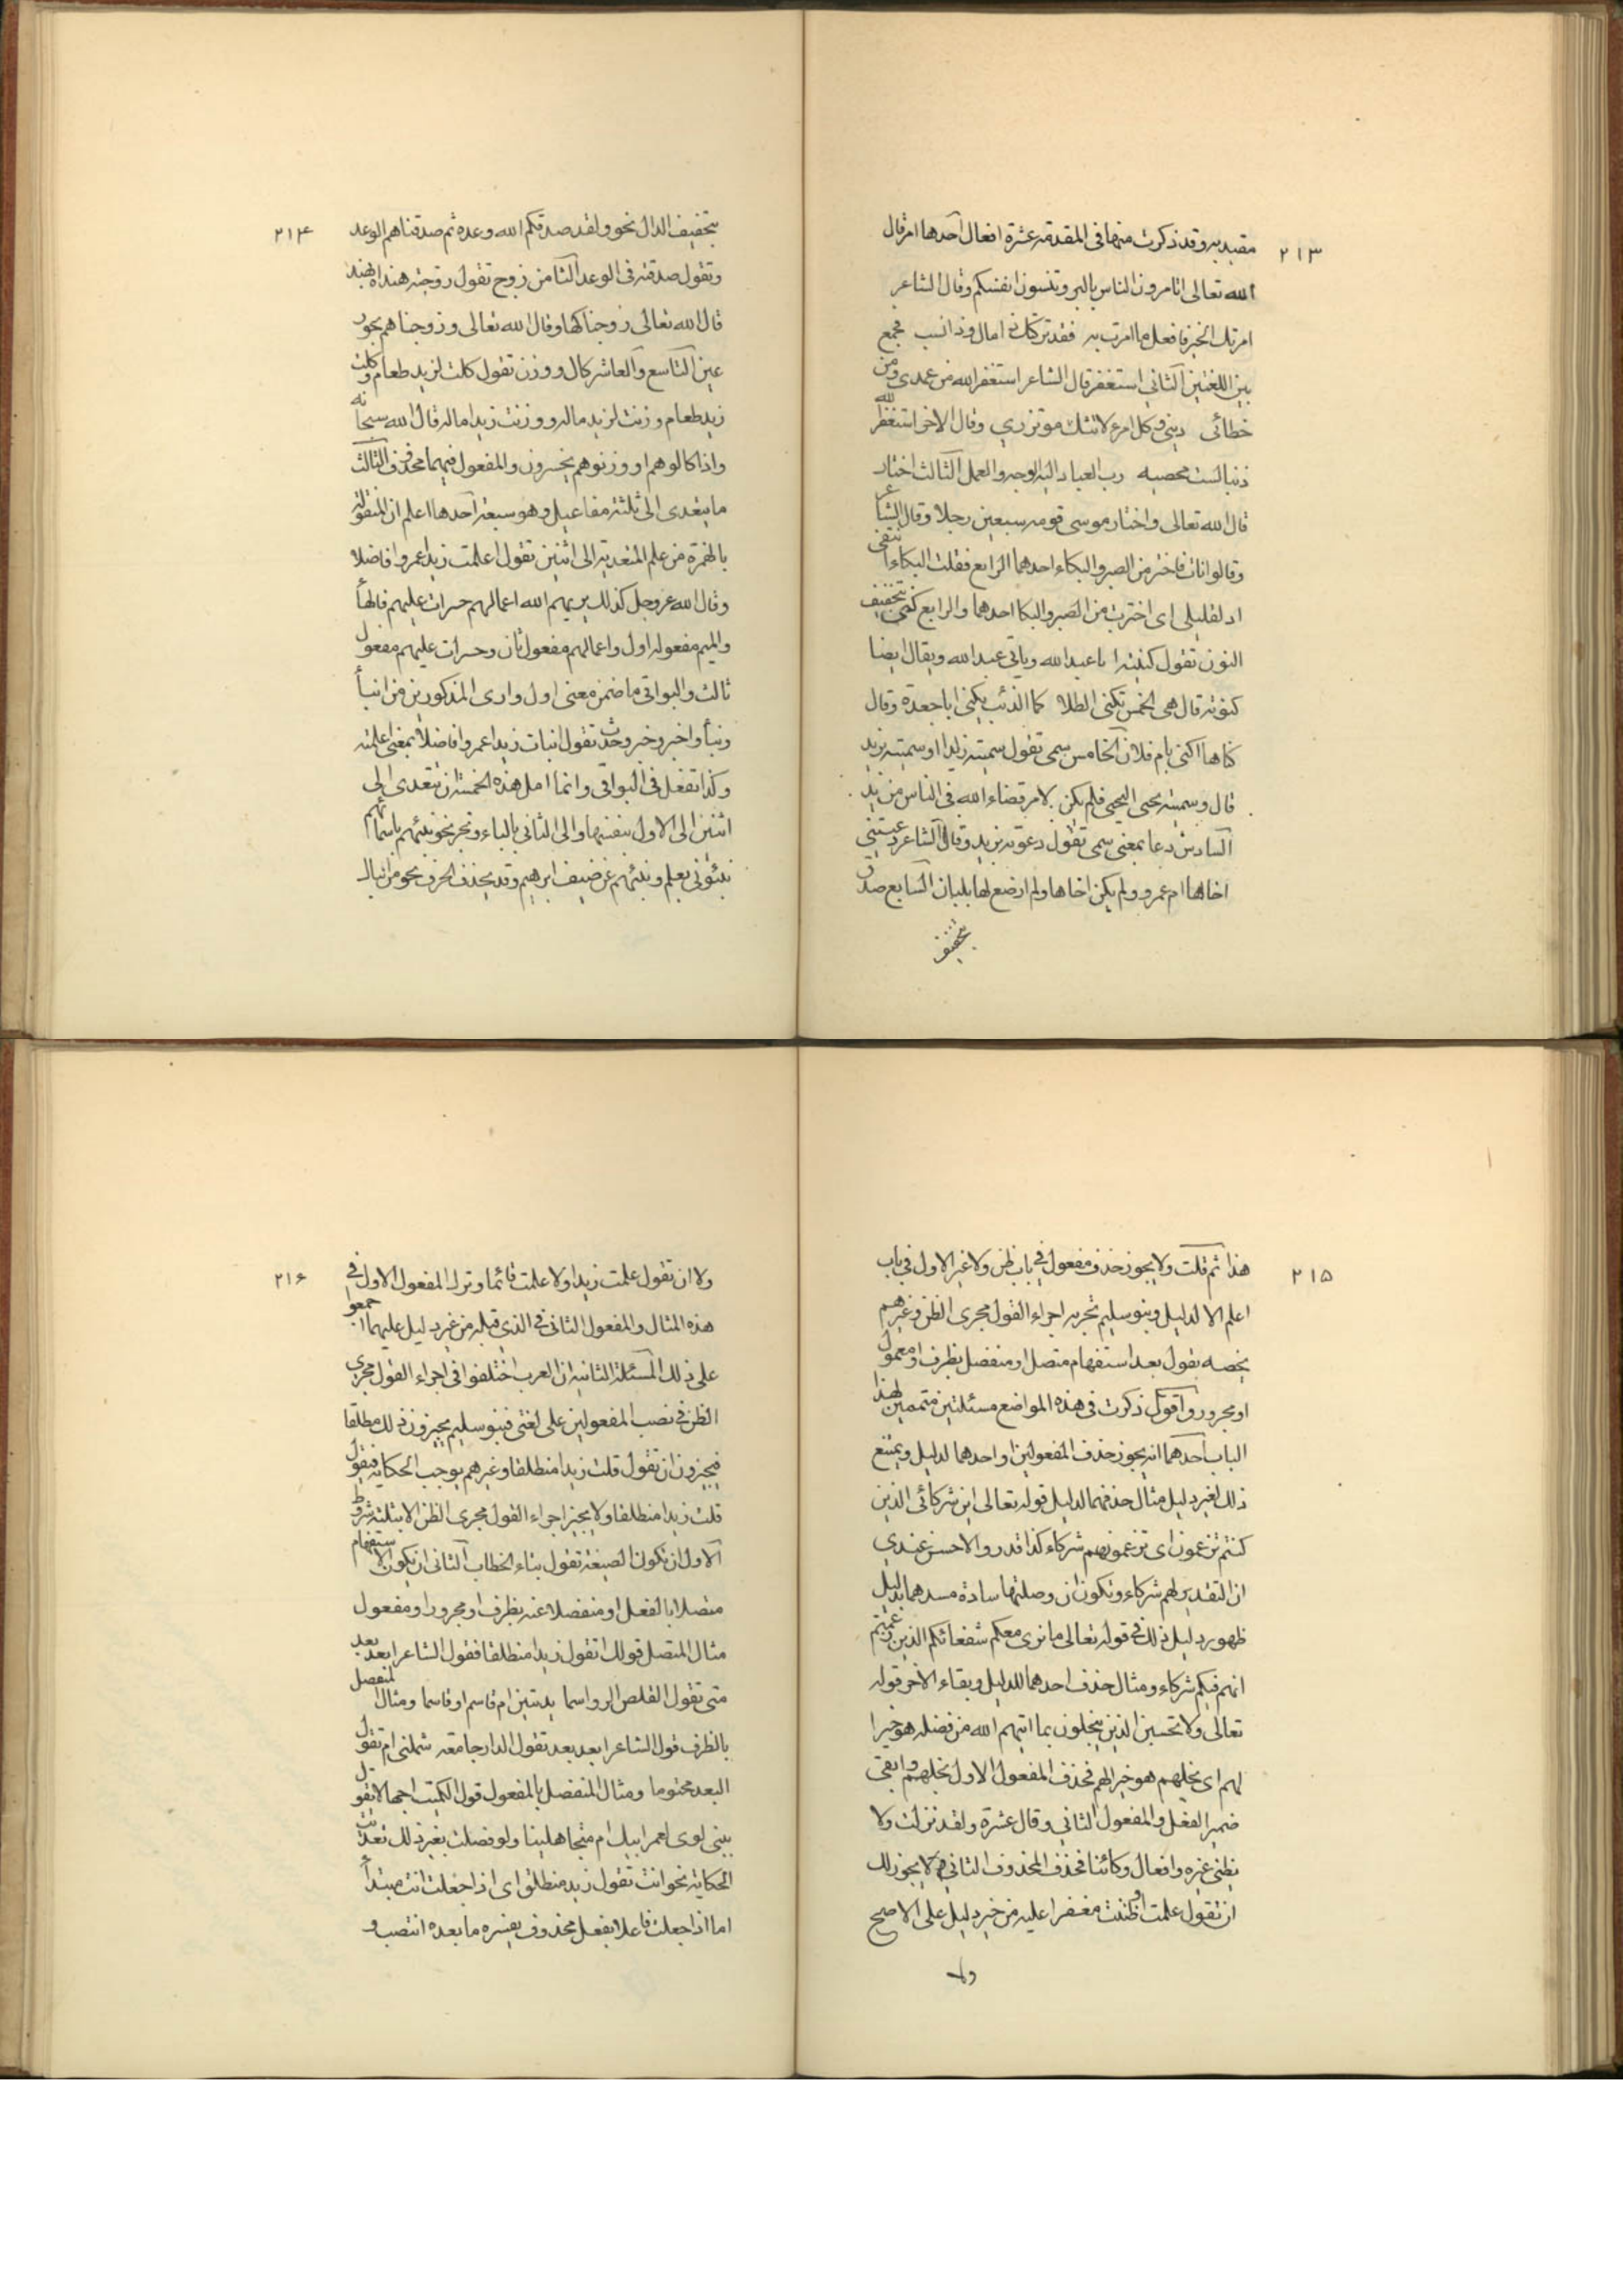 ٢١٣
مقيد به وقد ذكرت منها فى المقدمة عشرة افعال آحدها امر قال
الله تعالى اتامرون الناس بالبر وتنسون انفسكم وقال الشاعر
امرتك الخير فافعل ما امرت به فقد تركتك ذا مال وذا نسب فجمع
بين اللغتين آلثانى استغفر قال الشاعر استغفر الله من عمدى ومن
خطائى ذنبى وكل امرء لا شك موتزرى وقال الاخر استغفر الله
ذنبا لست محصيه رب العباد اليه الوجه والعمل آلثالث اختار
قال الله تعالى واختار موسى قومه سبعين رجلا وقال الشاعر
وقالوا نات فاختر من الصبر والبكاء احدهما الرابع فقلت البكاء اشفى
اذ لغليلى اى اخترت من الصبر والبكا احدهما والرابع كنى بتخفيف
النون تقول كنيته ابا عبد الله وبابى عبد الله ويقال ايضا
كنوته قال هى الخمر تكنى الطلا كما الذئب يكنى ابا جعدة وقال
كناها اكنى بام فلان آلخامس سمى تقول سميته زيدا او سميته بزيد
قال وسميته يحيى ليحيى فلم يكن لامر قضاه الله فى الناس من بد
آلسادس دعا بمعنى سمى تقول دعوته بزيد وقال الشاعر دعتنى
اخاها ام عمرو ولم يكن اخاها ولم ارضع لها بلبان آلسابع صدق
بتخفيف
٢١۴
بتخفيف الدال نحو ولقد صدقكم الله وعده ثم صدقناهم الوعد
وتقول صدقته فى الوعد آلثامن زوج تقول زوجته هندا وبهند
قال الله تعالى زوجناكها وقال الله تعالى وزوجناهم بحور
عين آلتاسع وآلعاشر كال ووزن تقول كلت لزيد طعام وكلت
زيد طعام وزنت لزيد ماله ووزنت زيدا ماله قال الله سبحانه
واذا كالوهم او وزنوهم يخسرون والمفعول فيهما محذوف آلثالث
ما يتعدى الى ثلثة مفاعيل وهو سبعة آحدها اعلم ان المنقولة
بالهمزة من علم المتعدية الى اثنين تقول اعلمت زيدا عمروا فاضلا
وقال الله عز وجل كذلك يريهم الله اعمالهم حسرات عليهم فالهأ
والميم مفعوله اول واعمالهم مفعول ثان وحسرات عليهم مفعول
ثالث والبواقى ما ضمن معنى اول وارى المذكورين من انبأ
ونبأ واخبر وخبر وحدث تقول انبات زيدا عمروا فاضلا بمعنى اعلمته
وكذا تفعل فى البواقى وانما اصل هذه الخمسة ان تتعدى الى
اثنين الى الاول بنفسها والى الثانى بالباء ونحو نحو نبئهم باسمائهم
نبئونى بعلم ونبئهم عن ضيف ابرهيم وقد يحذف الحرف نحو من انباك
٢١۵
هذا ثم قلت ولا يجوز حذف مفعول فى باب ظن ولا غير الاول فى باب
اعلم الا لدليل وبنو سليم تجريه اجراء القول مجرى الظن وغيرهم
يخصه بقول بعد استفهام متصل او منفصل بظرف او معمول
او مجرور وآقول ذكرت فى هذه المواضع مسئلتين متممين لهذا
الباب آحدهما انه يجوز حذف المفعولين او احدهما لدليل ويمتنع
ذلك لغير دليل مثال حذفهما لدليل قوله تعالى اين شركائى الذين
كنتم تزعمون اى تزعمونهم شركاء كذا قدروا والاحسن عندى
ان التقدير لهم شركاء وتكون ان وصلتها سادة مسدهما بدليل
ظهور دليل ذلك فى قوله تعالى ما نرى معكم شفعائكم الذين زعمتم
انهم فيكم شركاء ومثال حذف احدهما للدليل وبقاء الاخر قوله
تعالى ولا تحسبن الذين يبخلون بما اتيهم الله من فضله هو خيرا
لهم اى بخلهم هو خيرا لهم فحذف المفعول الاول بخلهم وابقى
ضمير الفعل والمفعول الثانى وقال عشرة ولقد نزلت ولا
تظنى غيره وافعال وكائنا فحذف المحذوف الثانى ولا يجوز لك
ان تقول علمت او ظننت مقتصرا عليه من خير دليل على الاصح
ولا
٢١۶
ولا ان تقول علمت زيدا ولا علمت قائما وترك المفعول الاول فى
هذه المثال والمفعول الثانى فى الذى قبله من غير دليل عليهما اجمعوا
على ذلك آلمسئلة الثانية ان العرب اختلفوا فى اجراء القول مجرى
الظن فى نصب المفعولين على لغتى فبنو سليم يجيزون ذلك مطلقا
فيجيزون ان تقول قلت زيدا منطلقا وغيرهم يوجب الحكاية فيقول
قلت زيدا منطلقا ولا يجيز اجراء القول مجرى الظن الا بثلثة شروط
آلاول ان تكون الصيغة تقول بتاء الخطاب آلثانى ان يكون الاستفهام
متصلا بالفعل او منفصلا عنه بظرف او مجرور او مفعول
مثال المتصل قولك اتقول زيدا منطلقا فقول الشاعر ابعد بعد
متى تقول القلص الرواسما يدنين ام قاسم او قاسما ومثال المنفصل
بالظرف قول الشاعر ابعد بعد تقول الدار جامعة شملنى ام تقول
البعد محتوما ومثال المنفصل بالمفعول قول الكميت اجهالا تقول
ببنى لوى لعمر ابيك ام متجاهلينا ولو فصلت بغير ذلك تعينت
الحكاية نحو انت تقول زيد منطلق اى اذا جعلت انت مبتدأ
اما اذا جعلت فاعلا بفعل محذوف يفسره ما بعده انتصب و